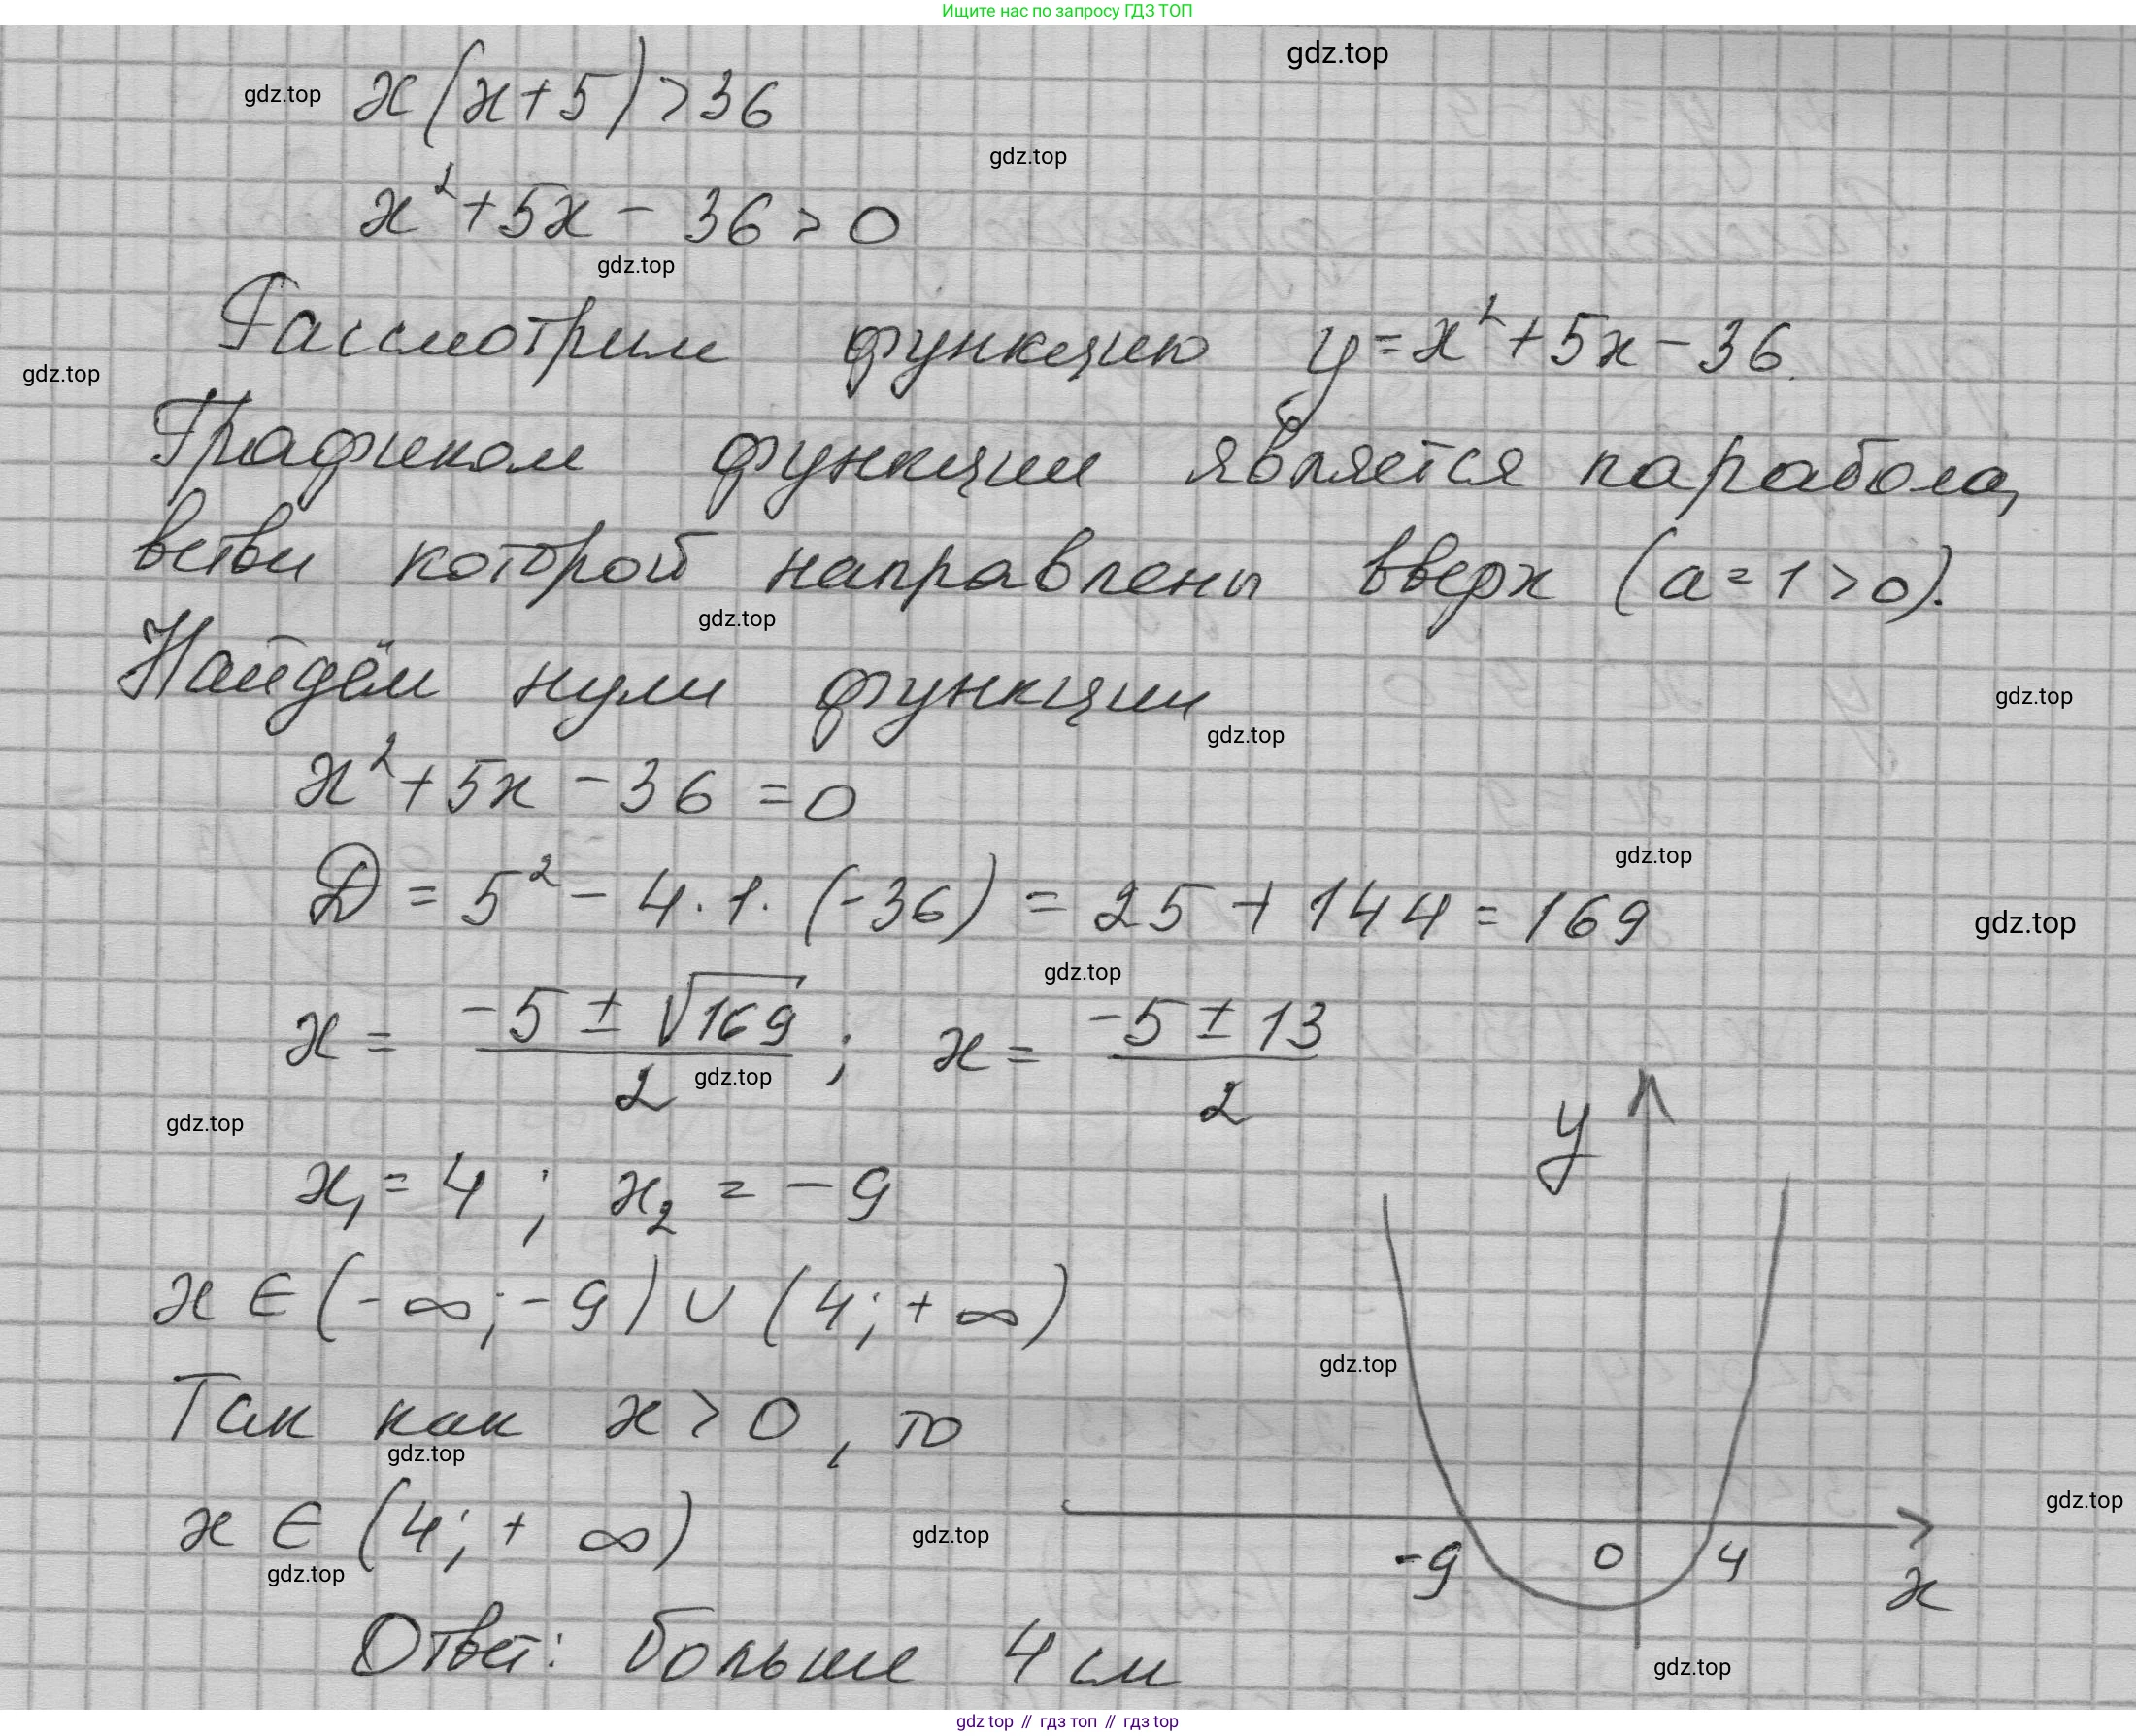 Ищите нас по запросу ГДЗ ТОП
gdz.top
gdz.top x(x+5)>36
gdz.top
x²+5x-36>0
gdz.top
Рассмотрим функцию y=x²+5x-36.
gdz.top
Графиком функции является парабола,
ветви которой направлены вверх (a=1>0).
gdz.top
Найдём нули функции
gdz.top
gdz.top
x²+5x-36=0
gdz.top
D = 5² - 4·1·(-36) = 25 + 144 = 169
gdz.top
gdz.top
x = (-5 ± √169)/2 ; x = (-5 ± 13)/2
gdz.top
gdz.top
y
x₁ = 4 ; x₂ = -9
x ∈ (-∞; -9) ∪ (4; +∞)
gdz.top
Так как x > 0, то
gdz.top
gdz.top
x ∈ (4; +∞)
gdz.top
-9 0 4
x
gdz.top
Ответ: больше 4 см
gdz.top
gdz top // гдз топ // гдз top